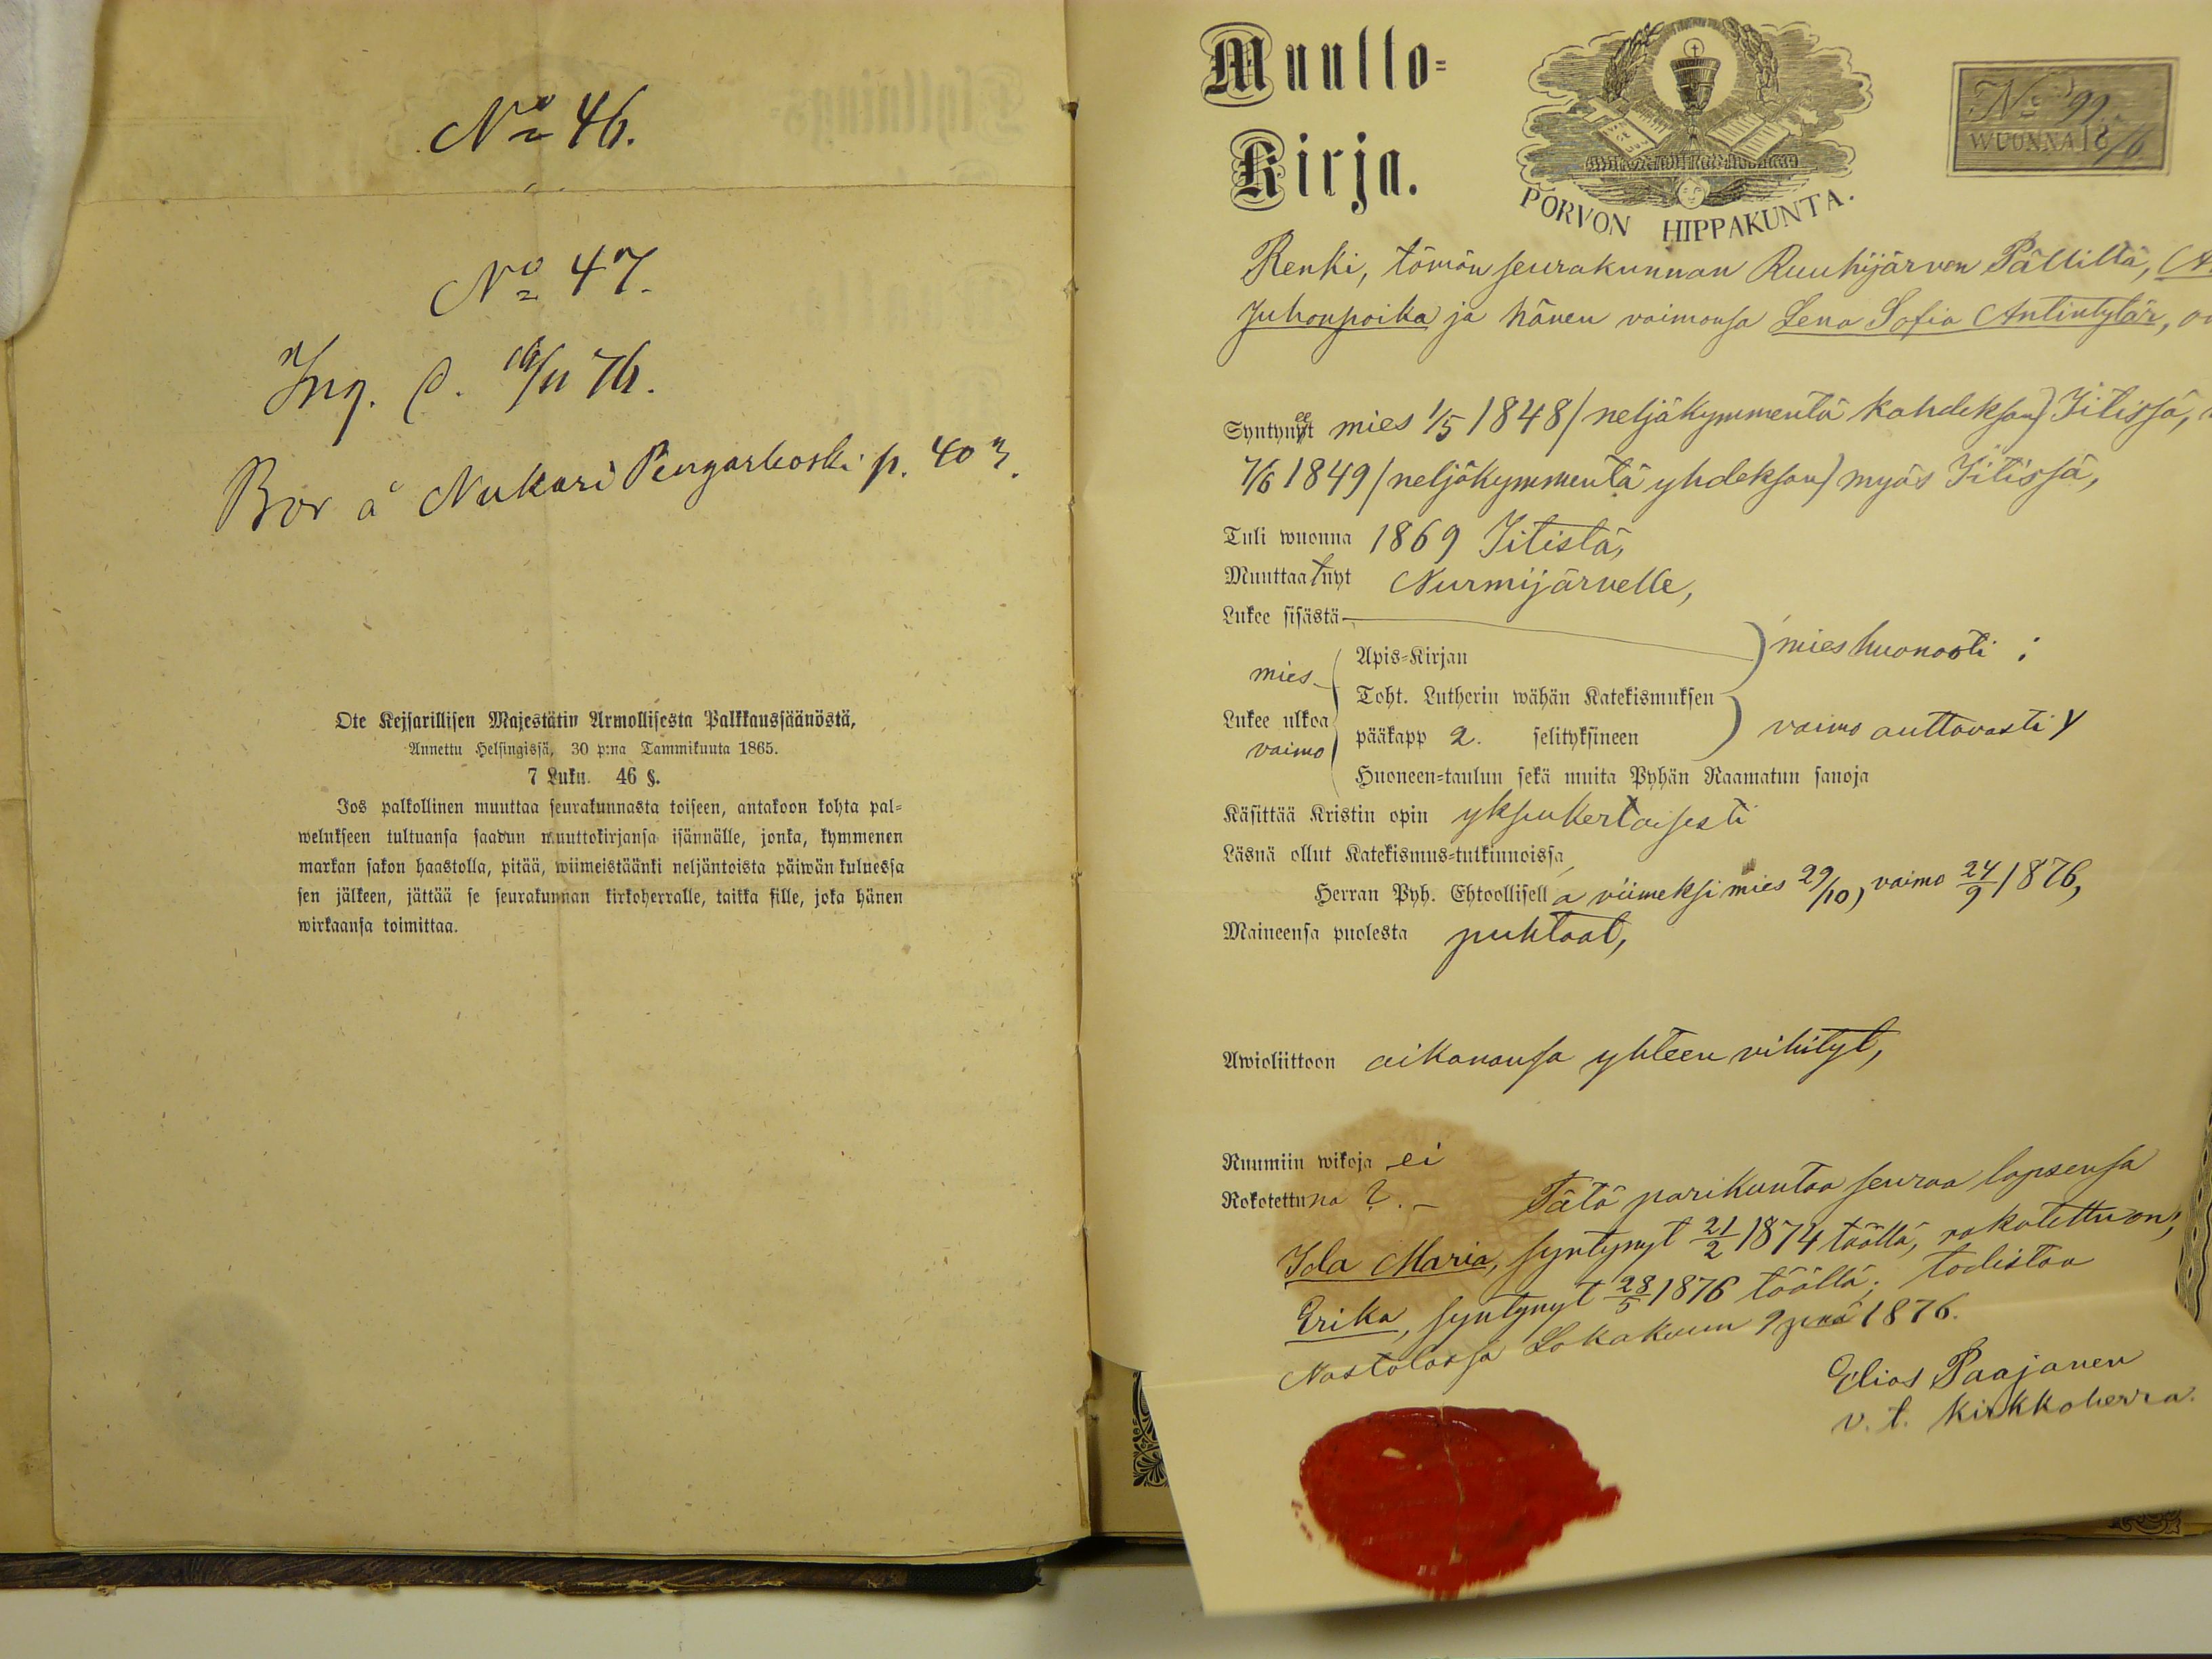 No 46.
No 47.
Ing. d. 16/11 76.
Bor å Nukari Pengarkoski p. 403.
Ote Keisarillisen Majestätin Armollisesta Palkkaussäänöstä,
Annettu Helsingissä, 30 p:nä Tammikuuta 1865.
7 Luku. 46 §.
Jos palkollinen muuttaa seurakunnasta toiseen, antakoon kohta pal-
welukseen tultuansa saadun muuttokirjansa isännälle, jonka, kymmenen
markan sakon haastolla, pitää, wiimeistäänki neljäntoista päiwän kuluessa
sen jälkeen, jättää se seurakunnan kirkoherralle, taikka sille, joka hänen
wirkaansa toimittaa.
Muutto-
Kirja.
PORVON HIPPAKUNTA.
No 99.
WUONNA 1876
Renki, tämän seurakunnan Ruuhijärven Pälliltä,
Juhonpoika ja hänen vaimonsa Lena Sofia Antintytär,
Syntyneet mies 1/5 1848 (neljäkymmentä kahdeksan) Iitissä,
7/6 1849 (neljäkymmentä yhdeksan) myös Iitissä,
Tuli wuonna 1869 Iitistä,
Muuttaa nyt Nurmijärvelle,
Lukee sisästä
mies huonosti ;
mies
Apis-Kirjan
Toht. Lutherin wähän Katekismuksen
Lukee ulkoa
vaimo
pääkapp 2. selityksineen
vaimo auttavasti
Huoneen-taulun sekä muita Pyhän Raamatun sanoja
Käsittää Kristin opin yksinkertaisesti
Läsnä ollut Katekismus-tutkinnoissa
Herran Pyh. Ehtoollisella viimeksi mies 29/10, vaimo 24/9 1876,
Maineensa puolesta puhtaat,
Awioliittoon aikanansa yhteen vihityt,
Ruumiin wikoja ei
Rokotettuna ?. – Tätä parikuntaa seuraa lapsensa
Ida Maria, syntynyt 21/2 1874 täällä, rokotettu on;
Erika, syntynyt 28/5 1876 täällä; todistaa
Nastolassa Lokakuun 9 pnä 1876.
Elias Paajanen
v. t. kirkkoherra.